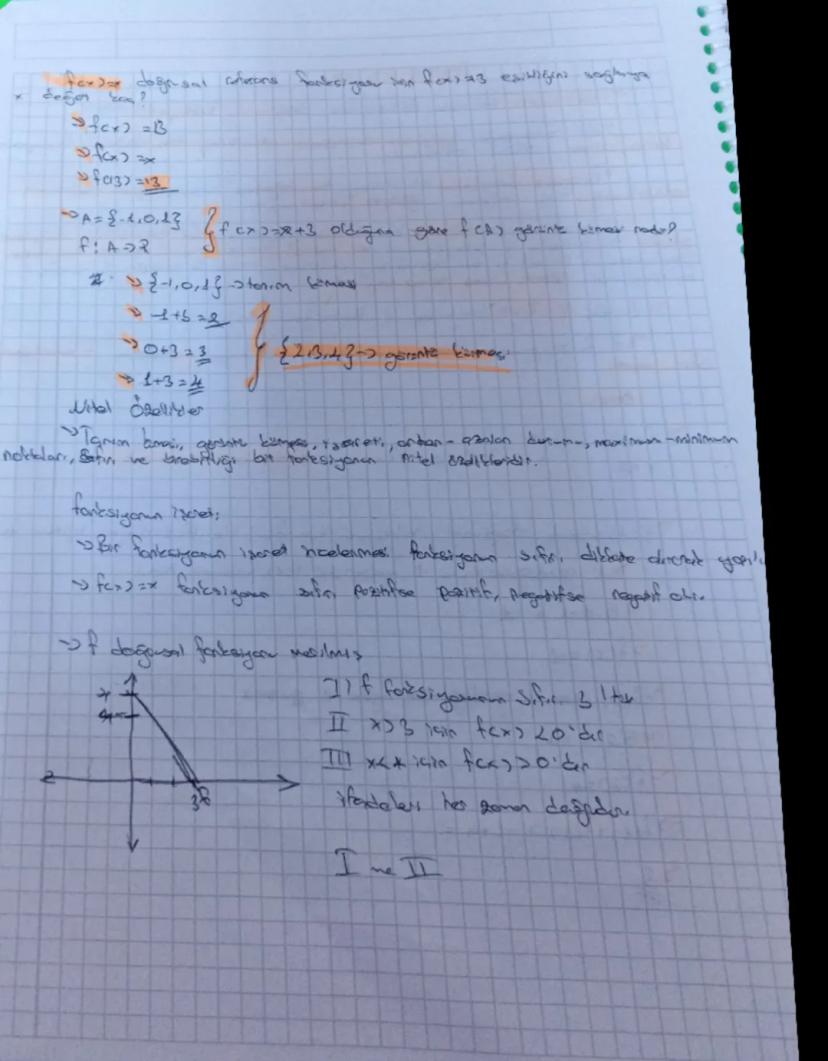 f(x)=x doğrusal referans fonksiyonu için f(x)=13 eşitliğini sağlayan
x değeri kaç?
→ f(x) = 13
→ f(x) = x
→ f(13) = 13
→ A = {-1, 0, 1}
f: A→
f(x)=x+3 olduğuna göre f(A) görüntü kümesi nedir?
→ {-1, 0, 1} → tanım kümesi
→ -1+3 = 2
→ 0+3 = 3
→ 1+3 = 4
{2, 3, 4} → görüntü kümesi
Nitel Özellikler
→ Tanım kümesi, görüntü kümesi, işareti, artan-azalan durumu, maximum-minimum
noktaları, sıfırı ve birebirliği bir fonksiyonun nitel özellikleridir.
fonksiyonun işareti;
→ Bir fonksiyonun işaret incelenmesi fonksiyonun sıfırı dikkate alınarak yapılır
→ f(x)=x fonksiyonu sıfırı pozitifse pozitif, negatifse negatif olur.
→ f doğrusal fonksiyonu verilmiş
3
I) f fonksiyonunun sıfırı 3'tür
II x>3 için f(x) <0'dır
III x<4 için f(x) >0'dır
ifadeleri her zaman doğrudur
I ve II